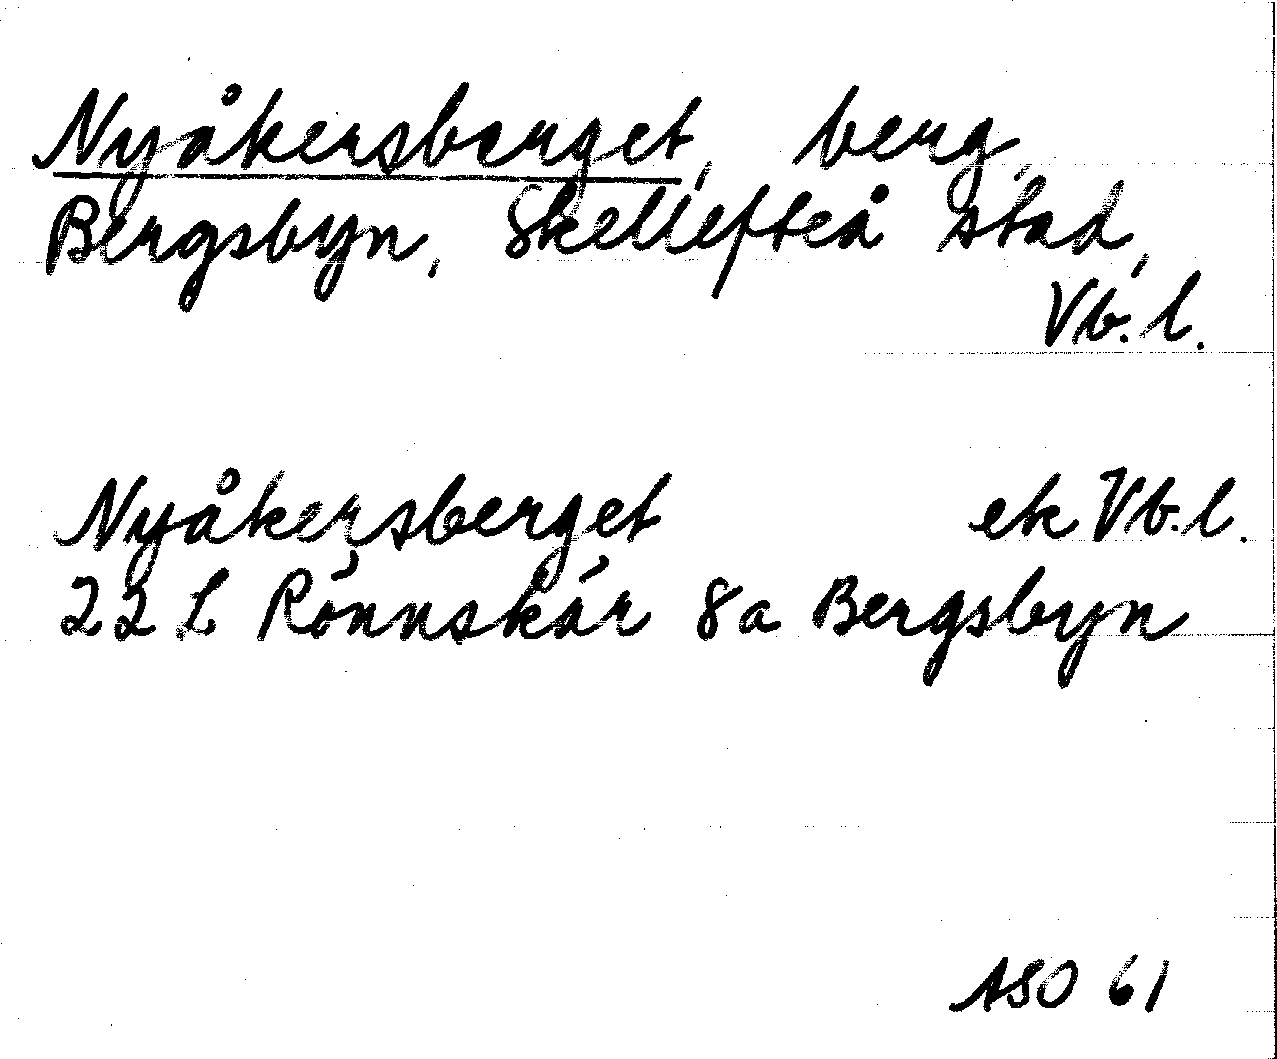 Nyåkersberget, berg,
Bergsbyn, Skellefteå stad,
Vb. l.
Nyåkersberget ek Vb. l.
22 L Rönnskär 8a Bergsbyn
ASO 61